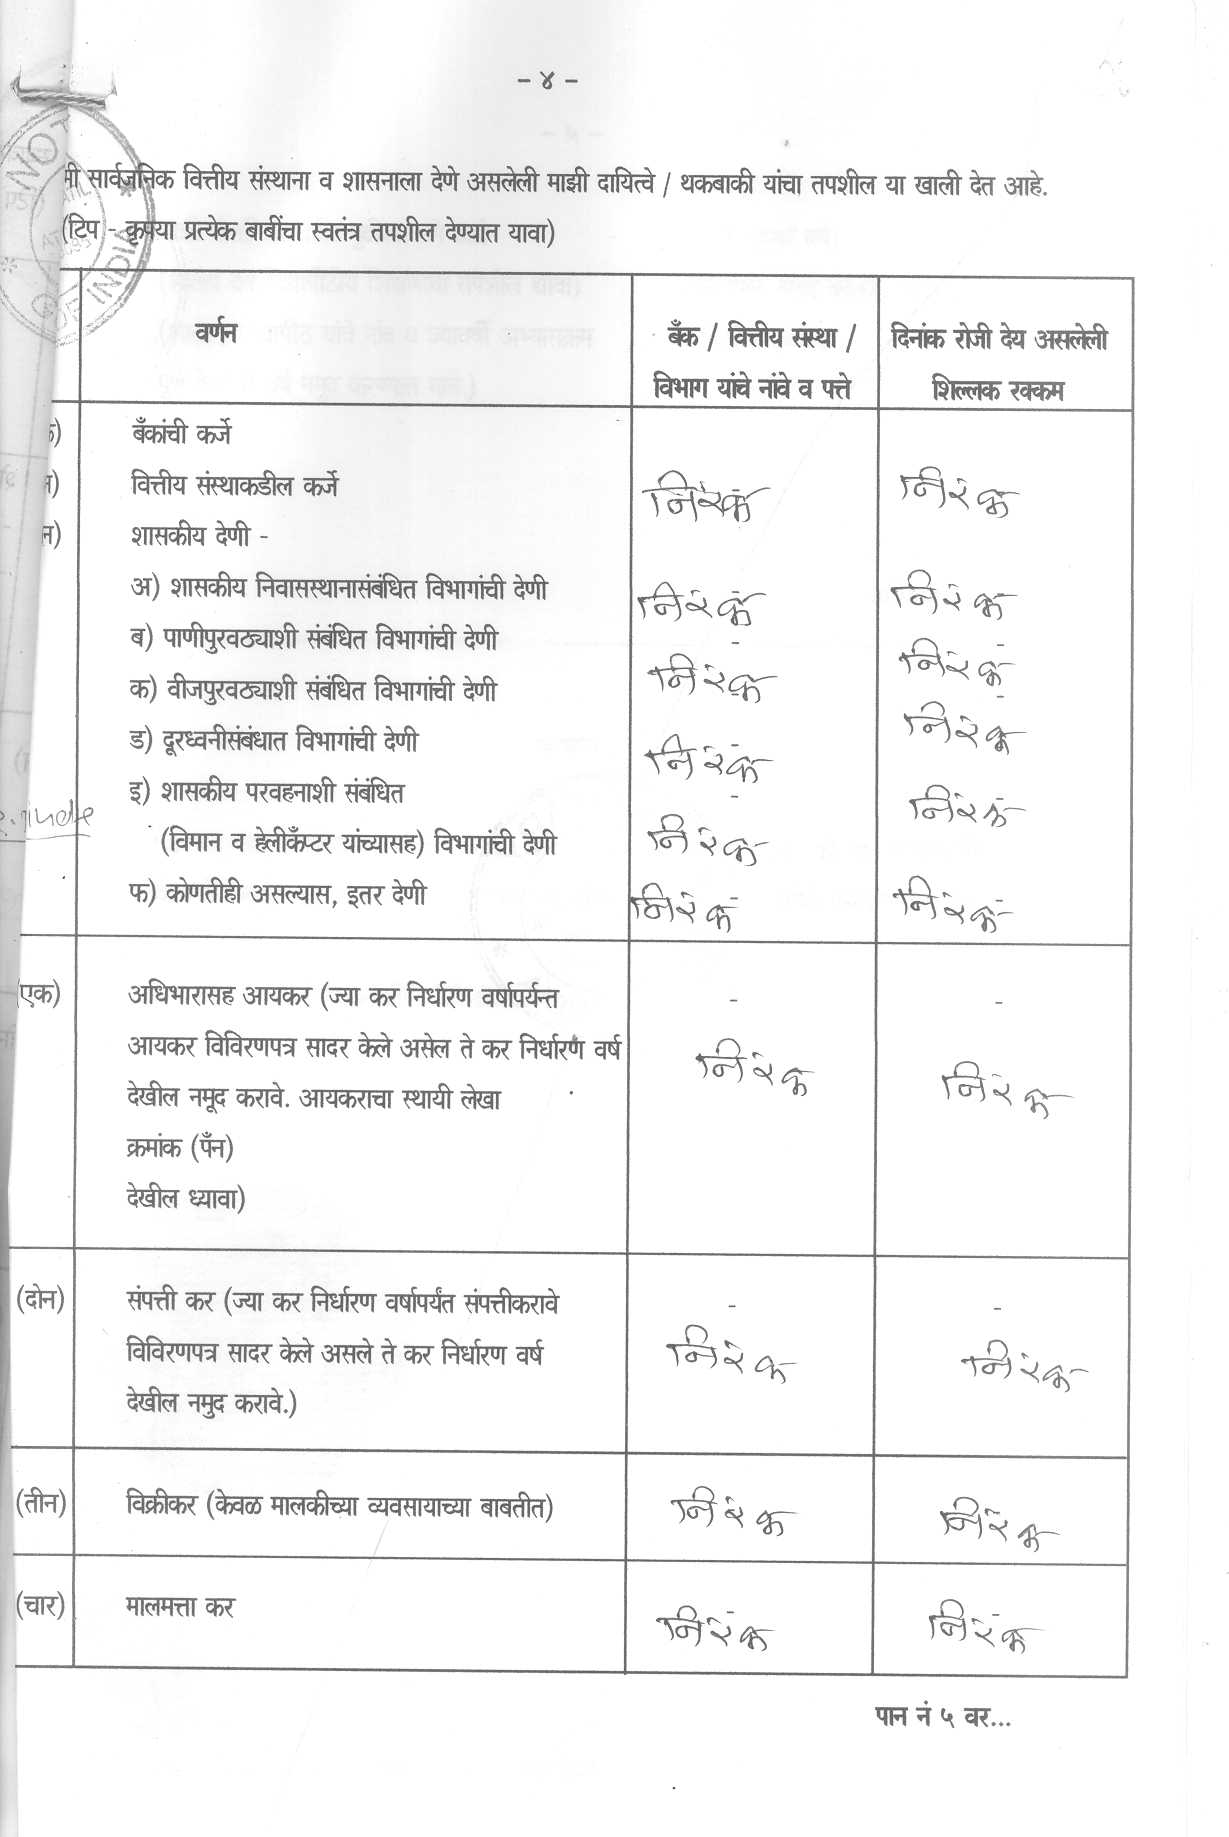 - ४ -
मी सार्वजनिक वित्तीय संस्थाना व शासनाला देणे असलेली माझी दायित्वे / थकबाकी यांचा तपशील या खाली देत आहे.
(टिप - कृपया प्रत्येक बाबींचा स्वतंत्र तपशील देण्यात यावा)
NOT
OF INDIA
वर्णन
बँक / वित्तीय संस्था /
विभाग यांचे नांवे व पत्ते
दिनांक रोजी देय असलेली
शिल्लक रक्कम
बँकांची कर्जे
वित्तीय संस्थाकडील कर्जे निरंक निरंक
शासकीय देणी -
अ) शासकीय निवासस्थानासंबंधित विभागांची देणी निरंक निरंक
ब) पाणीपुरवठ्याशी संबंधित विभागांची देणी - -
क) वीजपुरवठ्याशी संबंधित विभागांची देणी निरंक निरंक -
ड) दूरध्वनीसंबंधात विभागांची देणी निरंक निरंक
इ) शासकीय परवहनाशी संबंधित - निरंक
(विमान व हेलीकँप्टर यांच्यासह) विभागांची देणी निरंक
फ) कोणतीही असल्यास, इतर देणी निरंक निरंक
(एक) अधिभारासह आयकर (ज्या कर निर्धारण वर्षापर्यन्त - -
आयकर विविरणपत्र सादर केले असेल ते कर निर्धारण वर्ष निरंक निरंक
देखील नमूद करावे. आयकराचा स्थायी लेखा
क्रमांक (पँन)
देखील ध्यावा)
(दोन) संपत्ती कर (ज्या कर निर्धारण वर्षापर्यंत संपत्तीकरावे - -
विविरणपत्र सादर केले असले ते कर निर्धारण वर्ष निरंक निरंक
देखील नमुद करावे.)
(तीन) विक्रीकर (केवळ मालकीच्या व्यवसायाच्या बाबतीत) निरंक निरंक
(चार) मालमत्ता कर निरंक निरंक
पान नं ५ वर...